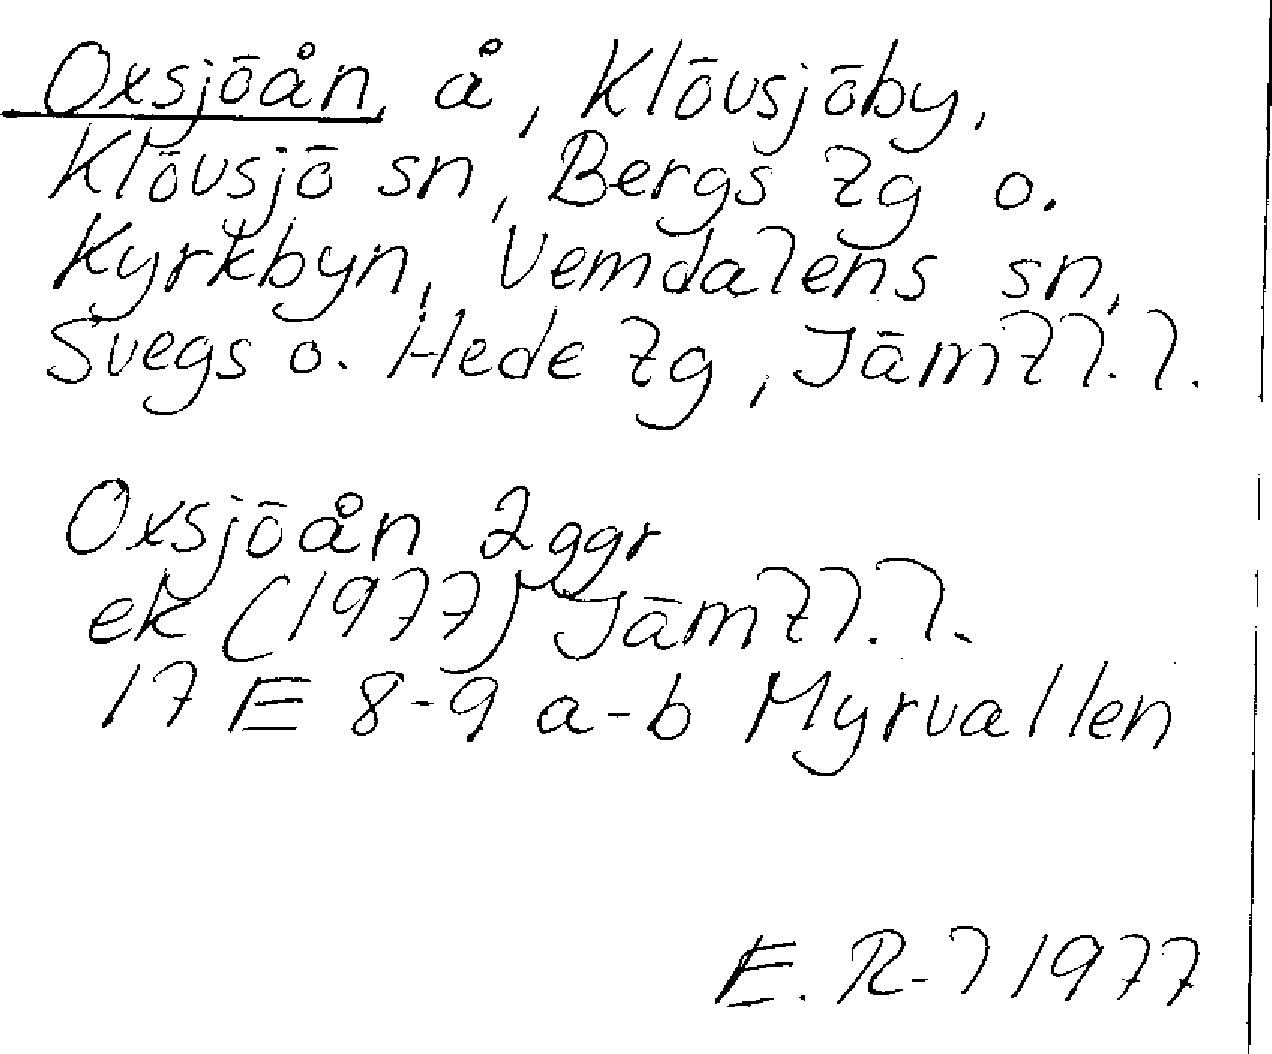 Oxsjöån, å, Klövsjöby,
Klövsjö sn, Bergs tg o.
Kyrkbyn, Vemdalens sn,
Svegs o. Hede tg, Jämtl. l.
Oxsjöån 2 ggr
ek (1977) Jämtl. l.
17 E 8-9 a-b Myrvallen
E. R-l 1977